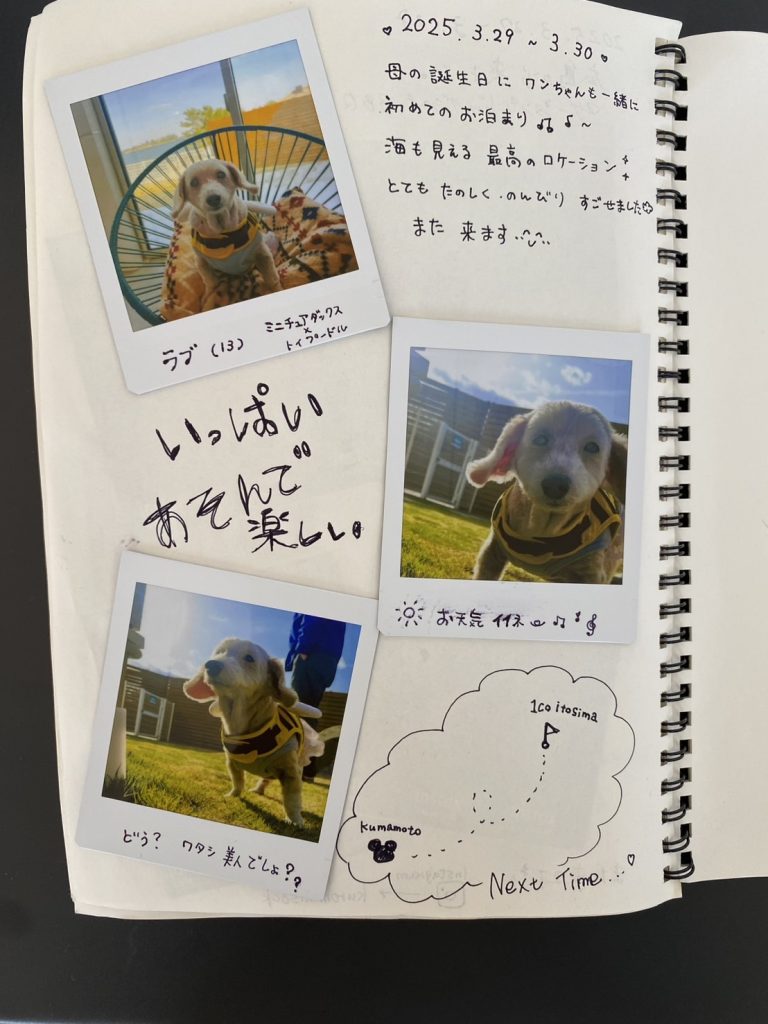 2025. 3.29 ~ 3.30
母の誕生日に ワンちゃんも一緒に
初めてのお泊まり ♫ ♪ ~
海も見える 最高のロケーション
とても たのしく、のんびり すごせました
また 来ます
ラブ (13) ミニチュアダックス
×
トイプードル
いっぱい
あそんで
楽しい
お天気 イイネ
どう? ワタシ 美人でしょ??
1co itosima
Kumamoto
Next Time...